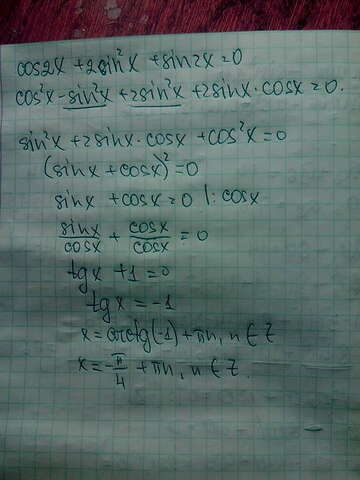 cos2x + 2sin²x + sin2x = 0
cos²x - sin²x + 2sin²x + 2sinx · cosx = 0.
sin²x + 2sinx · cosx + cos²x = 0
(sinx + cosx)² = 0
sinx + cosx = 0 | : cosx
sinx/cosx + cosx/cosx = 0
tgx + 1 = 0
tgx = -1
x = arctg(-1) + πn, n ∈ Z
x = -π/4 + πn, n ∈ Z.